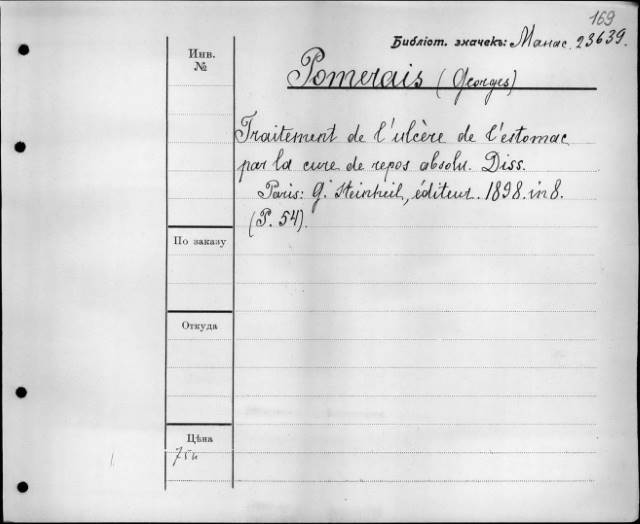 169
Библіот. значекъ: Манас. 23639.
Инв.
№
Pomerais (Georges)
Traitement de l'ulcère de l'estomac
par la cure de repos absolu. Diss.
Paris: G. Steinheil, éditeur. 1898. in 8.
(P. 54).
По заказу
Откуда
Цѣна
75к